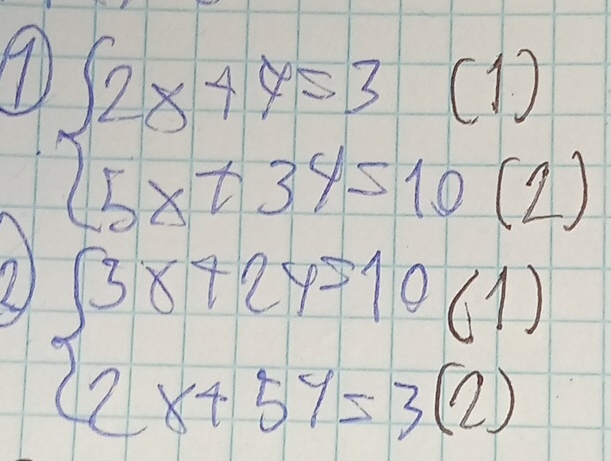 1) 2x+y=3 (1)
5x+3y=10 (2)
2) 3x+2y=10 (1)
2x+5y=3 (2)